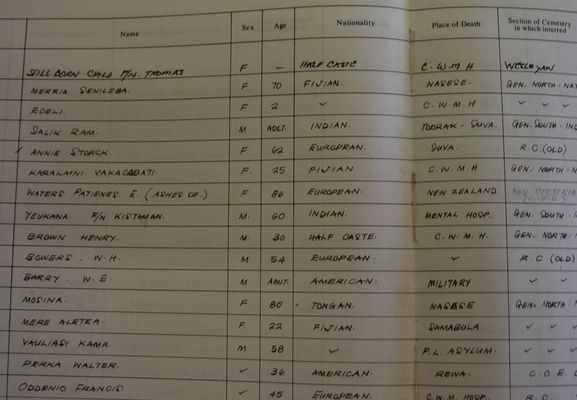 Name Sex Age Nationality Place of Death Section of Cemetery in which interred
STILL BORN CHILD F/N. THOMAS F — HALF CASTE C. W. M. H WESLEYAN
MERRIA SENILEBA. F 70 FIJIAN. NASESE. GEN. NORTH. NAT
F 2 ✓ C. W. M. H ✓ ✓ ✓
SALIK RAM. M ADLT. INDIAN. TOORAK - SUVA. GEN. SOUTH. IND
ANNIE STORCK. F 62 EUROPEAN. SUVA. R. C. (OLD)
KARALAINI VAKACABATI F 25 FIJIAN C. W. M. H GEN. NORTH
WATERS PATIENES. E. (ASHES OF.) F 86 EUROPEAN. NEW ZEALAND
YEUKANA F/N KISTAMAN. M. 60 INDIAN. MENTAL HOSP. GEN. SOUTH
BROWN HENRY. M. 30 HALF CASTE. C. W. M. H. GEN. NORTH
BOWERS. W. H. M 54 EUROPEAN. ✓ R. C. (OLD)
BARRY. W. E. M ADUT. AMERICAN. MILITARY ✓ ✓
MOSINA. F 80 TONGAN. NASESE GEN. NORTH
MERE ALETEA. F. 22 FIJIAN. SAMABULA. ✓ ✓ ✓
VAULIASI KAMA. M 58 ✓ P. L. ASYLUM. ✓ ✓ ✓
PERKA WALTER. ✓ 36 AMERICAN. REWA. C. O. E.
ODDENIO FRANCIS ✓ 45 EUROPEAN. C. W. M. HOSP. R. C.